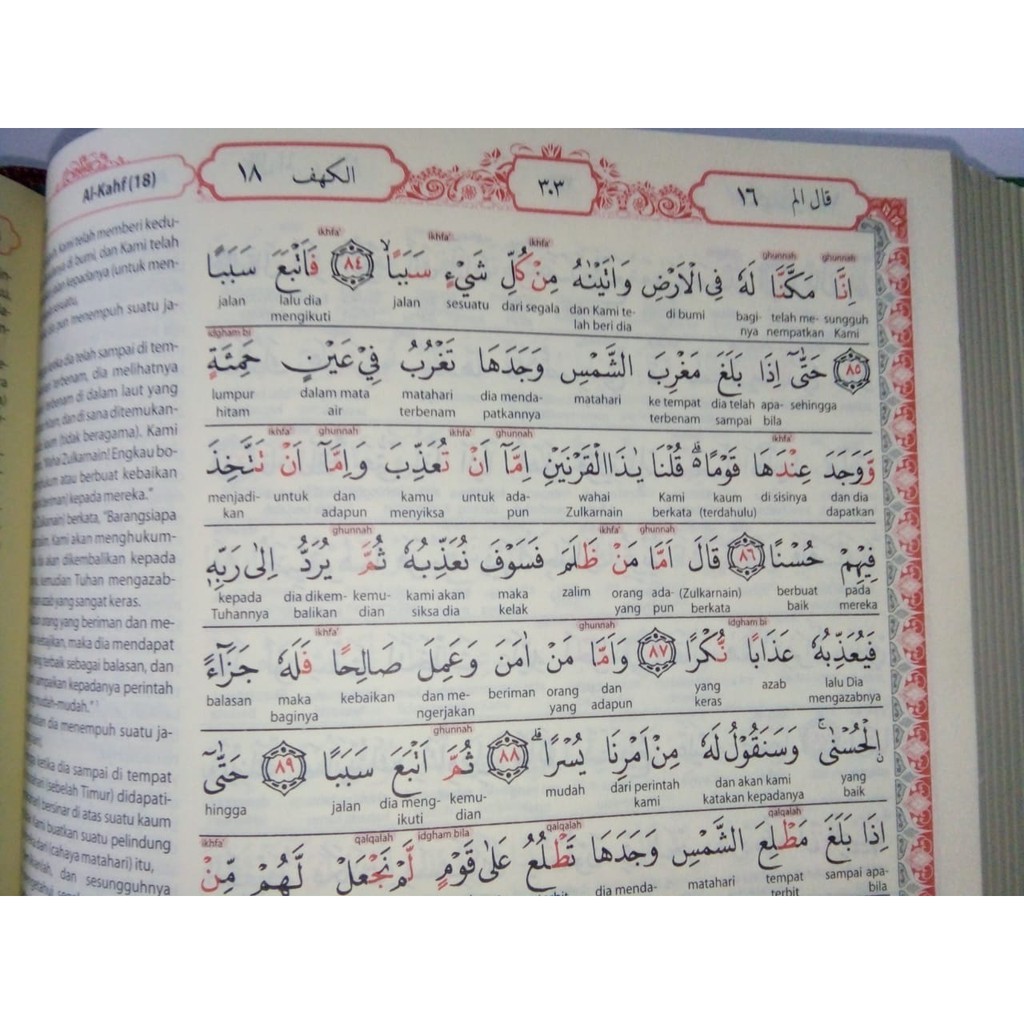 Al-Kahf (18)
الكهف ١٨
٣٠٣
قال الم ١٦
ikhfa' ikhfa' ikhfa' ghunnah ghunnah
اِنَّا مَكَّنَّا لَهٗ فِى الْاَرْضِ وَاٰتَيْنٰهُ مِنْ كُلِّ شَيْءٍ سَبَبًا ۙ ٨٤ فَاَتْبَعَ سَبَبًا
jalan lalu dia jalan sesuatu dari segala dan Kami te- di bumi bagi- telah me- sungguh
mengikuti lah beri dia nya nempatkan Kami
idgham bi
٨٥ حَتّٰىٓ اِذَا بَلَغَ مَغْرِبَ الشَّمْسِ وَجَدَهَا تَغْرُبُ فِيْ عَيْنٍ حَمِئَةٍ
lumpur dalam mata matahari dia menda- matahari ke tempat dia telah apa- sehingga
hitam air terbenam patkannya terbenam sampai bila
ikhfa' ghunnah ikhfa' ghunnah ikhfa'
وَّوَجَدَ عِنْدَهَا قَوْمًا ەۗ قُلْنَا يٰذَا الْقَرْنَيْنِ اِمَّآ اَنْ تُعَذِّبَ وَاِمَّآ اَنْ تَتَّخِذَ
menjadi- untuk dan kamu untuk ada- wahai Kami kaum di sisinya dan dia
kan adapun menyiksa pun Zulkarnain berkata (terdahulu) dapatkan
ghunnah ikhfa' ghunnah
فِيْهِمْ حُسْنًا ٨٦ قَالَ اَمَّا مَنْ ظَلَمَ فَسَوْفَ نُعَذِّبُهٗ ثُمَّ يُرَدُّ اِلٰى رَبِّهٖ
kepada dia dikem- kemu- kami akan maka zalim orang ada- (Zulkarnain) berbuat pada
Tuhannya balikan dian siksa dia kelak yang pun berkata baik mereka
ikhfa' ghunnah idgham bi
فَيُعَذِّبُهٗ عَذَابًا نُّكْرًا ٨٧ وَاَمَّا مَنْ اٰمَنَ وَعَمِلَ صَالِحًا فَلَهٗ جَزَاۤءً
balasan maka kebaikan dan me- beriman orang dan yang azab lalu Dia
baginya ngerjakan yang adapun keras mengazabnya
ghunnah
ۨالْحُسْنٰىۚ وَسَنَقُوْلُ لَهٗ مِنْ اَمْرِنَا يُسْرًا ۗ ٨٨ ثُمَّ اَتْبَعَ سَبَبًا ٨٩ حَتّٰىٓ
hingga jalan dia meng- kemu- mudah dari perintah dan akan kami yang
ikuti dian kami katakan kepadanya baik
ikhfa' qalqalah idgham bila qalqalah qalqalah
اِذَا بَلَغَ مَطْلِعَ الشَّمْسِ وَجَدَهَا تَطْلُعُ عَلٰى قَوْمٍ لَّمْ نَجْعَلْ لَّهُمْ مِّنْ
dia menda- matahari tempat sampai apa-
terbit bila
Kami telah memberi kedu-
di bumi, dan Kami telah
kepadanya (untuk men-
sesuatu,
pun menempuh suatu ja-
dia telah sampai di tem-
terbenam, dia melihatnya
terbenam di dalam laut yang
dan di sana ditemukan-
(tidak beragama). Kami
"Wahai Zulkarnain! Engkau bo-
atau berbuat kebaikan
kepada mereka."
berkata, "Barangsiapa
Kami akan menghukum-
akan dikembalikan kepada
kemudian Tuhan mengazab-
yang sangat keras.
orang yang beriman dan me-
maka dia mendapat
terbaik sebagai balasan, dan
kepadanya perintah
mudah-mudah."
dia menempuh suatu ja-
ketika dia sampai di tempat
(sebelah Timur) didapati-
bersinar di atas suatu kaum
Kami buatkan suatu pelindung
dari (cahaya matahari) itu,
dan sesungguhnya